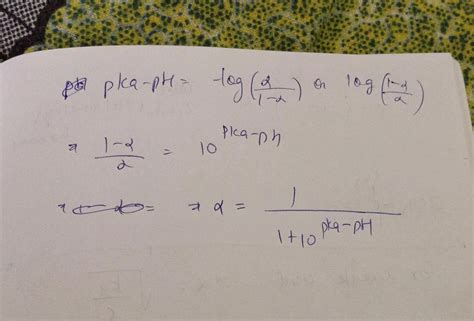 pKa-pH = -log(α/(1-α)) or log((1-α)/α)
⇒ (1-α)/α = 10^(pKa-pH)
⇒ α = 1/(1+10^(pKa-pH))